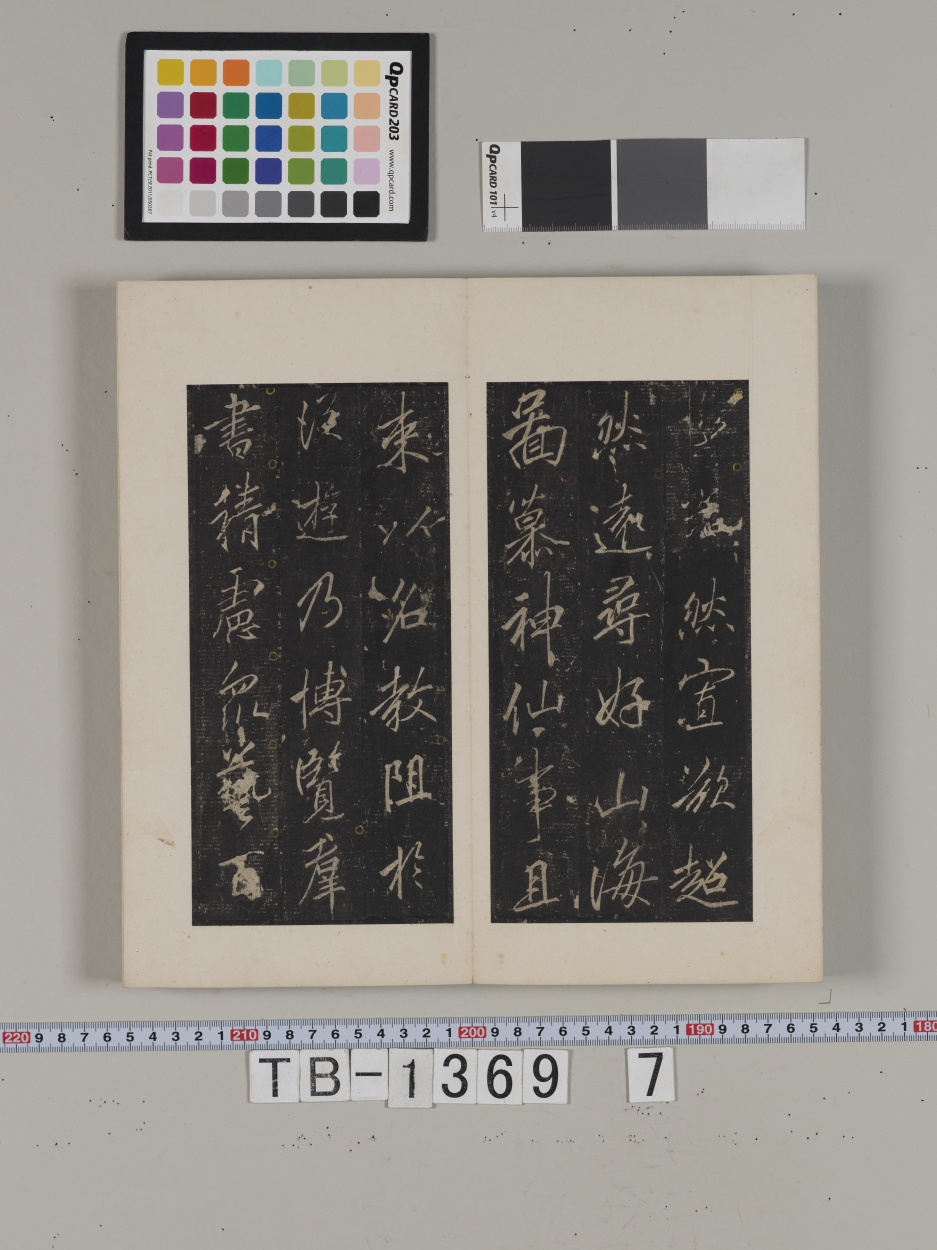 QpCARD 203
www.qpcard.com
QpCARD 101
然宣欲超
然遠尋好山海
啚慕神仙事且
束以名教阻於
從遊乃博覽羣
書精慮眾藝百
220 9 8 7 6 5 4 3 2 1 210 9 8 7 6 5 4 3 2 1 200 9 8 7 6 5 4 3 2 1 190 9 8 7 6 5 4 3 2 1 180
TB-1369 7